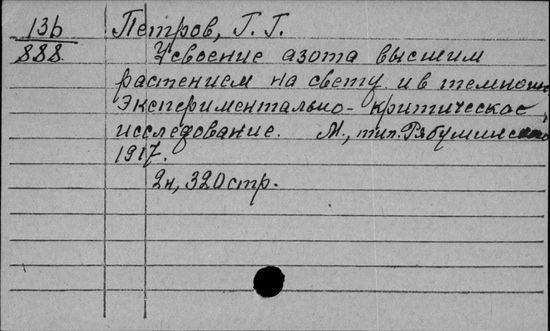 13b Петров, Г. Г.
888. Усвоение азота высшим
растением на свету и в темно
Экспериментально-критическое
исследование. М., тип. Рябушинск
1917.
2н, 320стр.